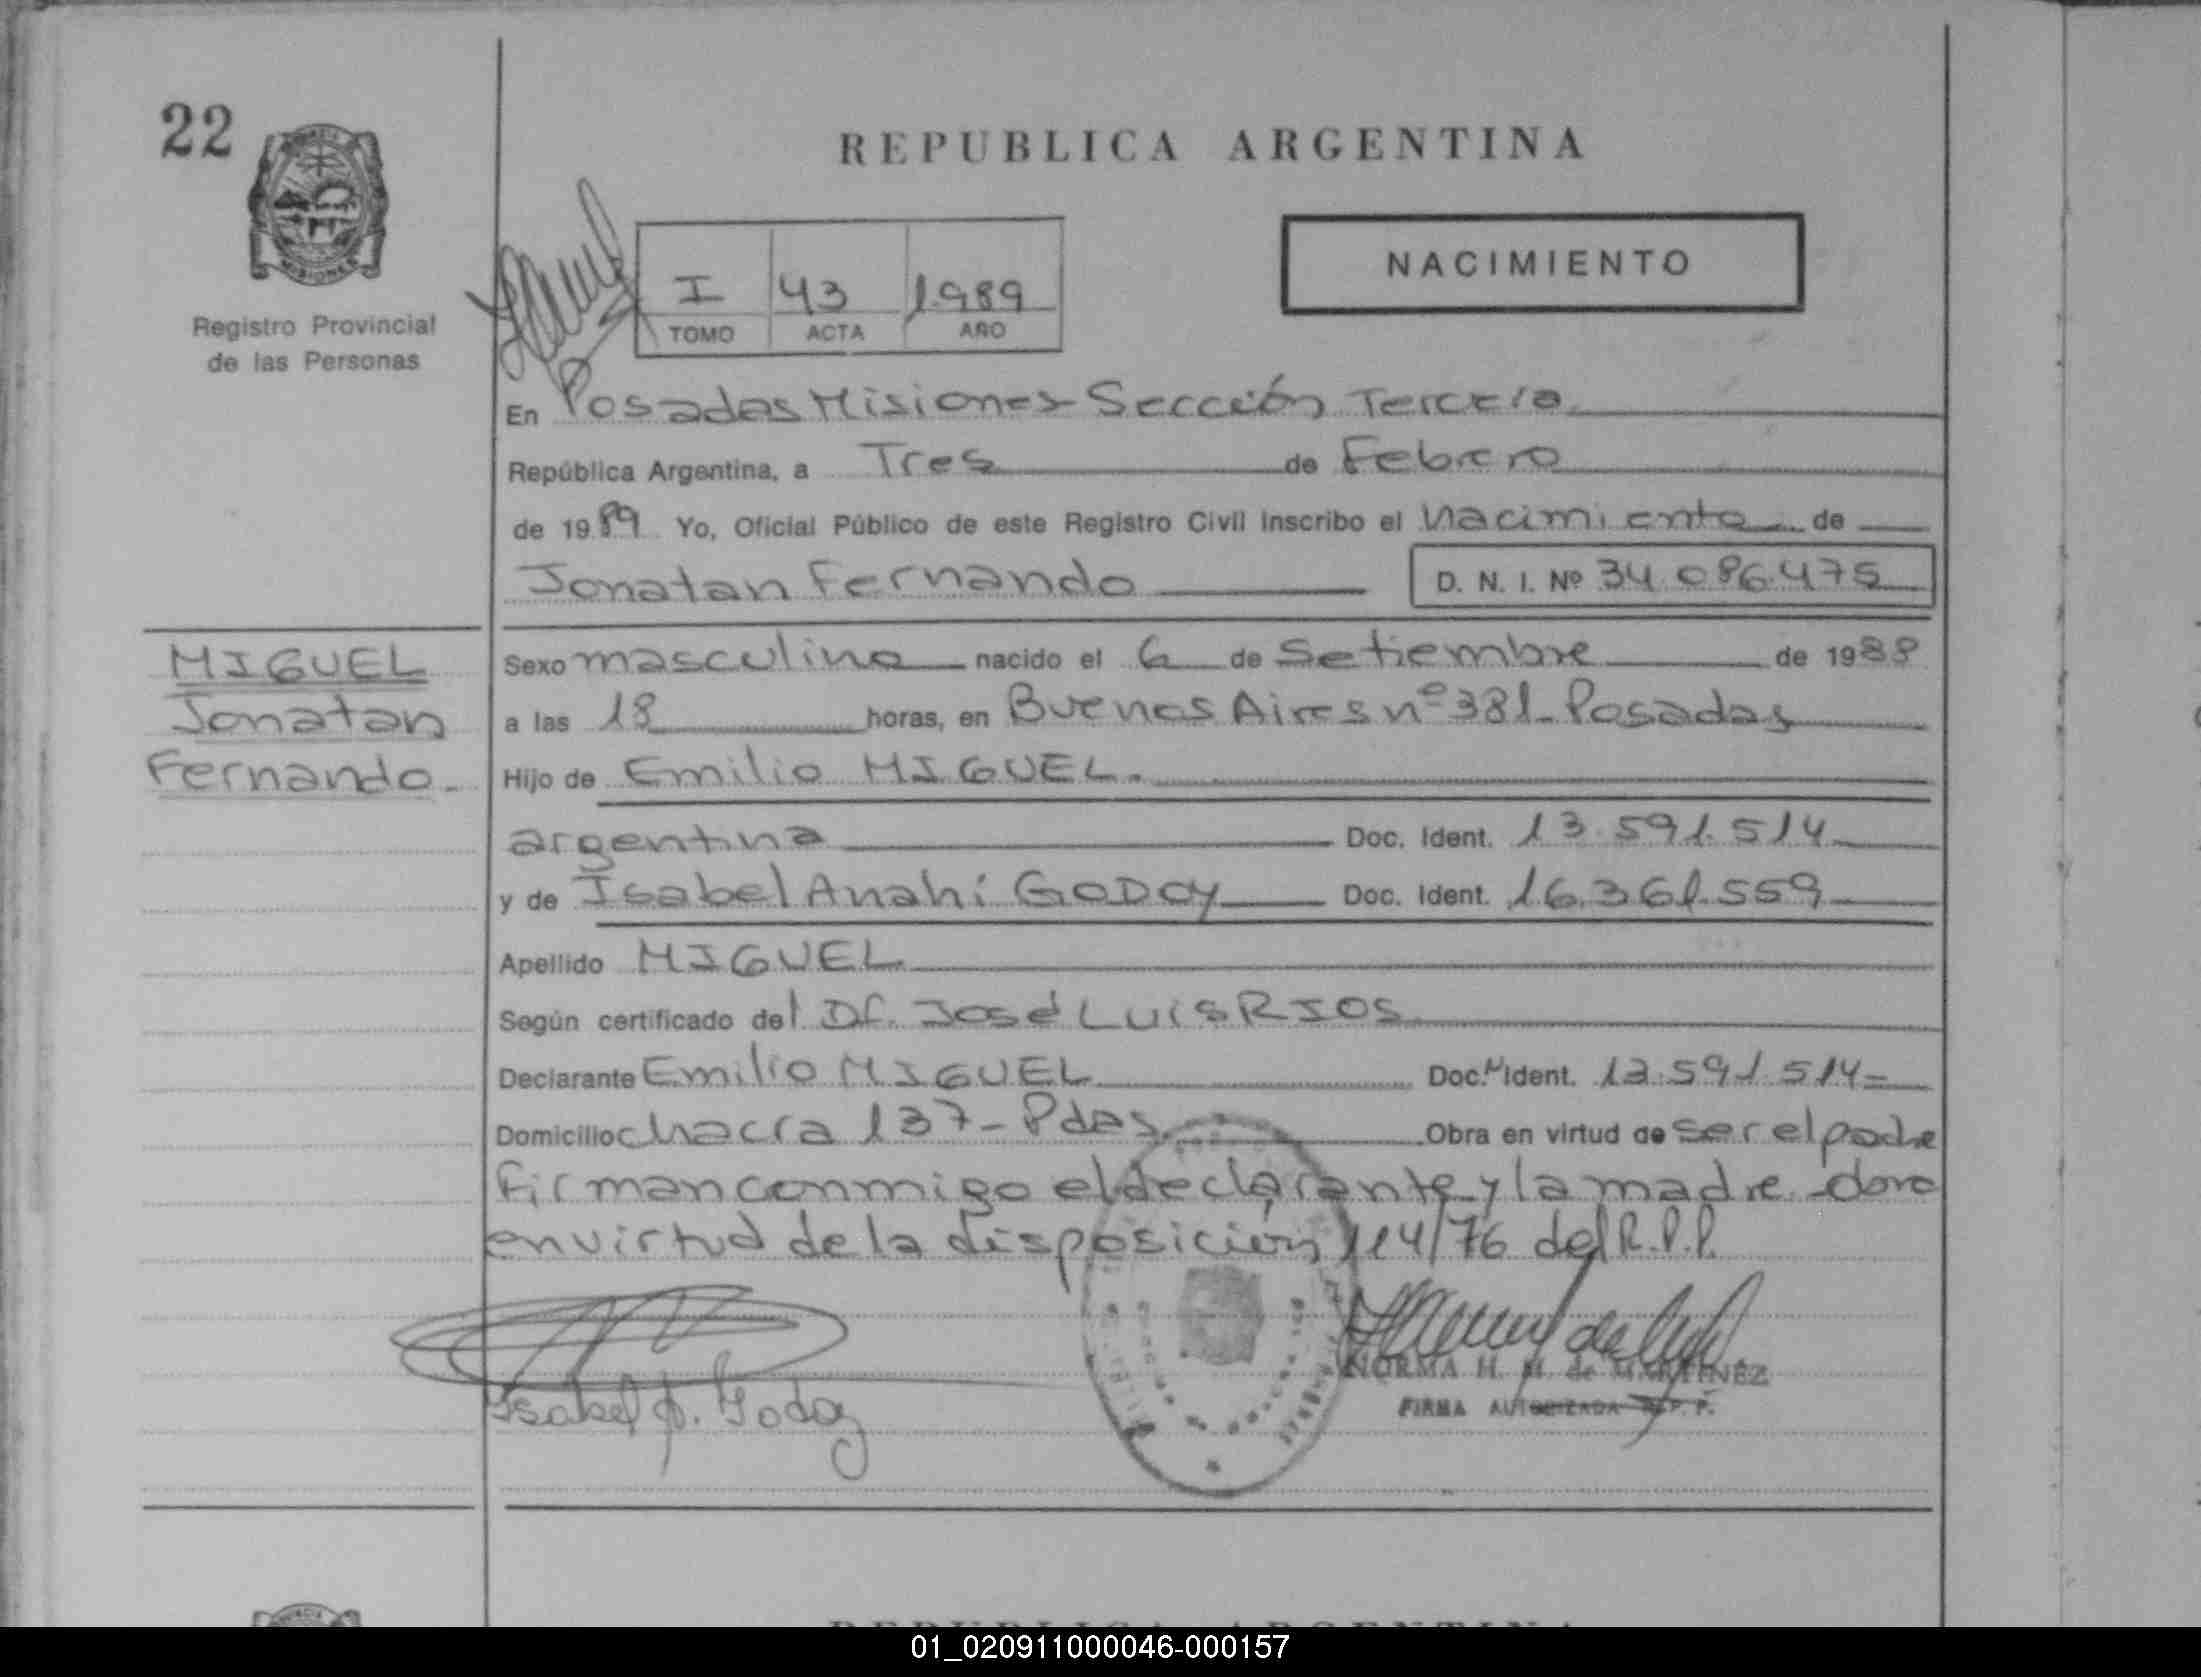 22
REPUBLICA ARGENTINA
MISIONES
Registro Provincial
de las Personas
I 43 1989
TOMO ACTA AÑO
NACIMIENTO
En Posadas Misiones Sección Tercera
República Argentina, a Tres de Febrero
de 1989 Yo, Oficial Público de este Registro Civil inscribo el Nacimiento de
Jonatan Fernando D. N. I. Nº 34.086.475
MIGUEL
Jonatan
Fernando.
Sexo masculino nacido el 6 de Setiembre de 1988
a las 18 horas, en Buenos Aires nº 381- Posadas
Hijo de Emilio MIGUEL.
argentina Doc. Ident. 13.591.514
y de Isabel Anahí GODOY Doc. Ident. 16.361.559
Apellido MIGUEL
Según certificado del Dr. José Luis RIOS
Declarante Emilio MIGUEL Doc. Ident. 13.591.514
Domicilio chacra 137- Pdas Obra en virtud de ser el padre
Firman conmigo el declarante y la madre
en virtud de la disposición 114/76 del R.P.P.
Isabel A. Godoy
NORMA H. M. de MARTINEZ
FIRMA AUTORIZADA R. P. P.
REPUBLICA ARGENTINA
01_020911000046-000157